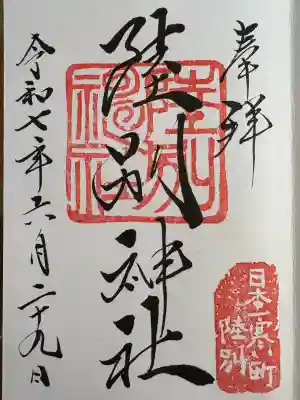 奉拝
陸別神社
令和七年六月二十九日
陸別神社
日本一寒い町
陸別